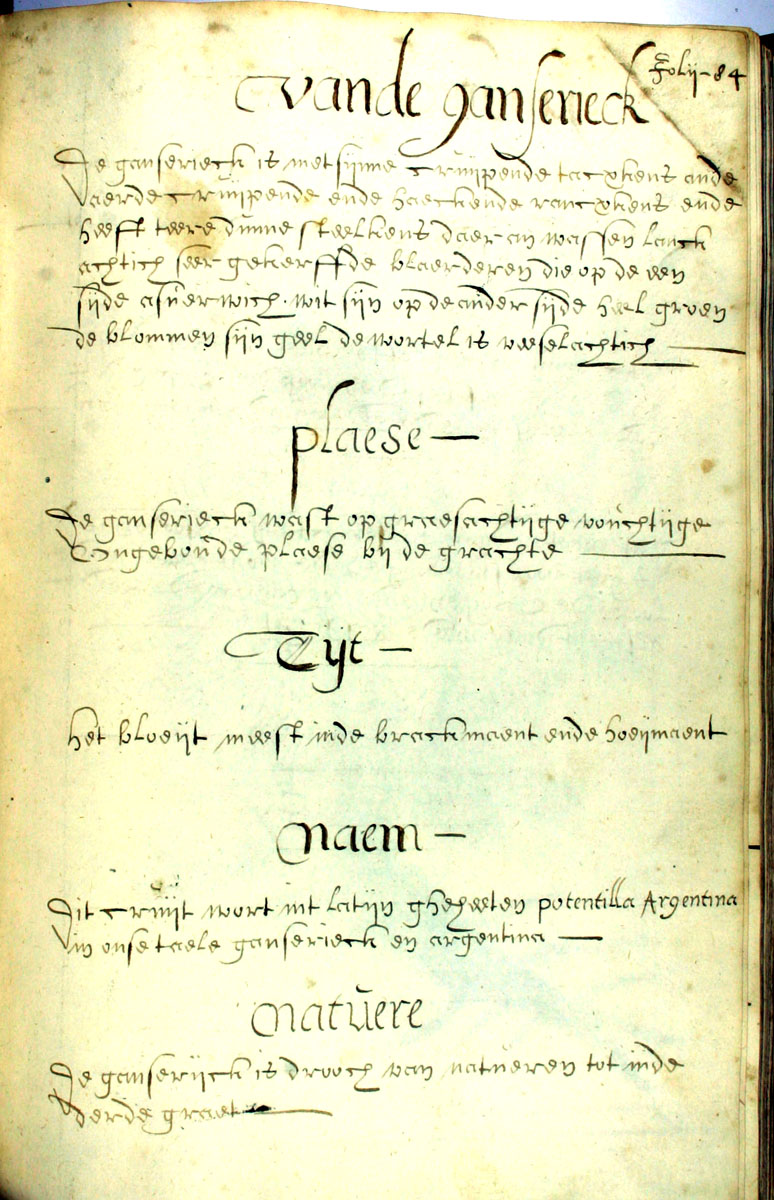 Folij-84
vande ganserieck
de ganserieck is met sijnne cruijpende tacxkens ande
aerde cruijpende ende haeckende rancxkens ende
heeft teere dunne steelkens daer an wassen lanck
achtich seer gekerffde blaerderen die op de een
sijde asuerwich wit sijn op de ander sijde heel groen
de blommen sijn geel de wortel is veeselachtich —
plaese —
de ganserieck wast op graesachtijge vouchtijge
ongeboude plaese bij de grachte —
Tijt —
het bloeijt meest inde brackmaent ende hoeijmaent
naem —
dit cruijt wort int latijn gheheeten potentilla Argentina
in onse taele ganserieck en argentina —
natuere
de ganserijck is drooch van natueren tot inde
derde graet —